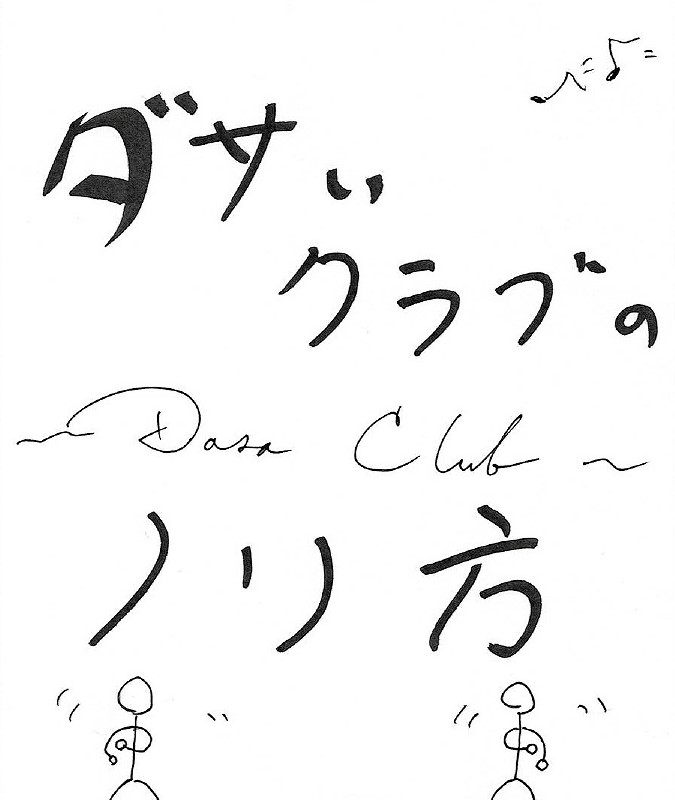 ダサい
クラブの
～Dasa Club～
ノリ方